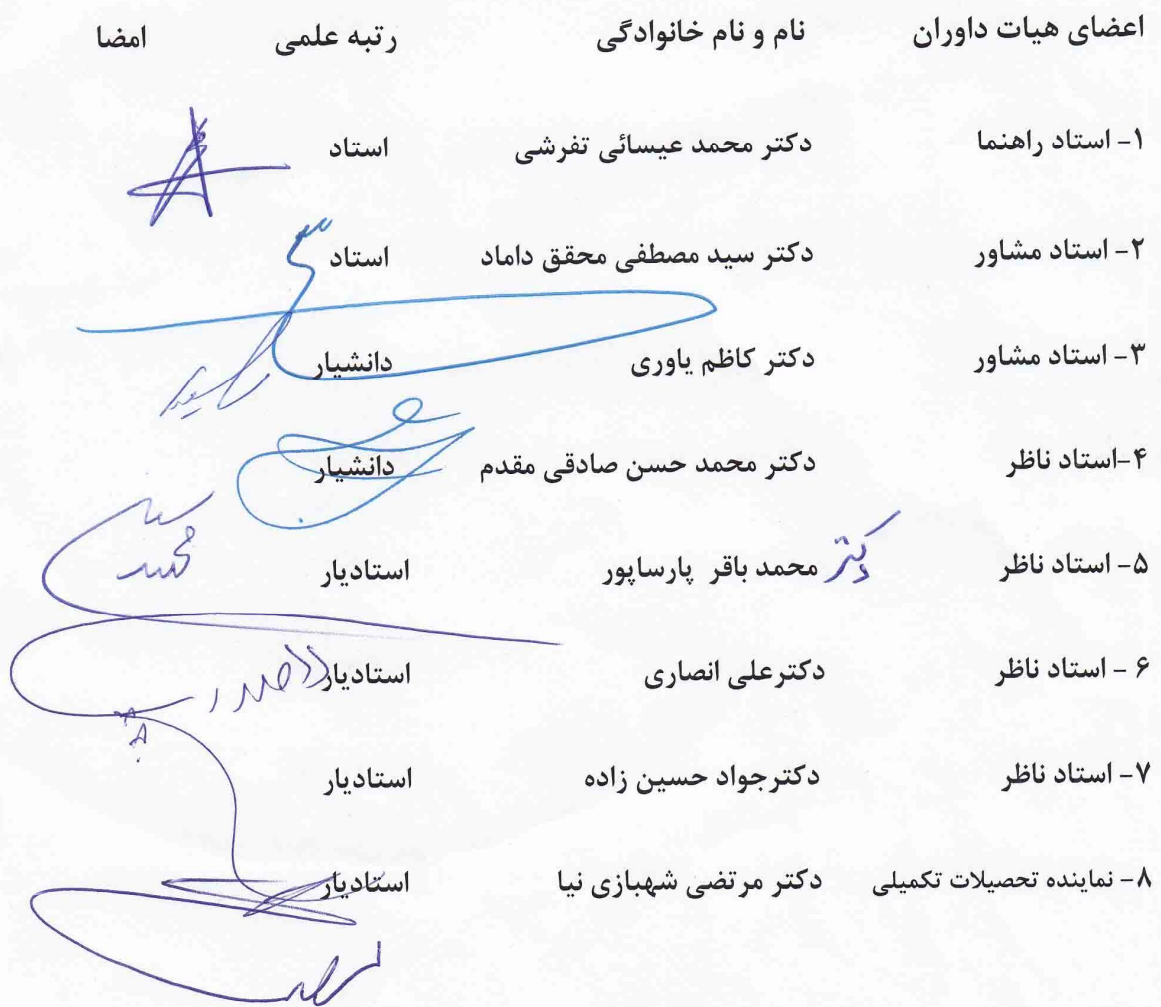 اعضای هیات داوران نام و نام خانوادگی رتبه علمی امضا
۱- استاد راهنما دکتر محمد عیسائی تفرشی استاد
۲- استاد مشاور دکتر سید مصطفی محقق داماد استاد
۳- استاد مشاور دکتر کاظم یاوری دانشیار
۴-استاد ناظر دکتر محمد حسن صادقی مقدم دانشیار
۵- استاد ناظر دکتر محمد باقر پارساپور استادیار
۶ - استاد ناظر دکترعلی انصاری استادیار
۷- استاد ناظر دکترجواد حسین زاده استادیار
۸- نماینده تحصیلات تکمیلی دکتر مرتضی شهبازی نیا استادیار